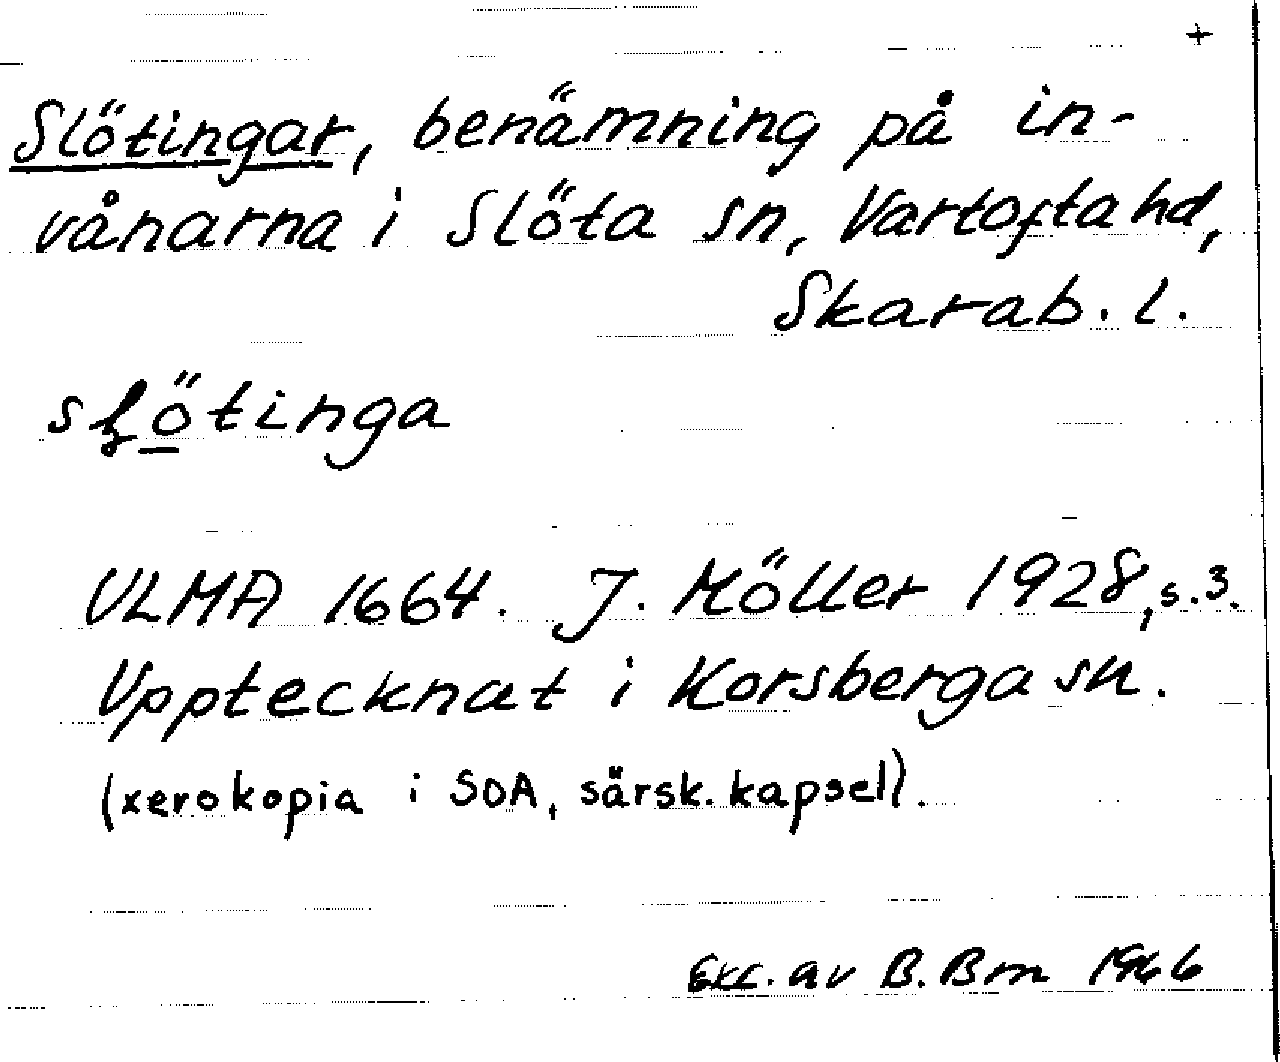 +
Slötingar, benämning på in-
vånarna i Slöta sn, Vartofta hd,
Skarab. l.
sɫö̱tinga
ULMA 1664. J. Möller 1928, s.3.
Upptecknat i Korsberga sn.
(xerokopia i SOA, särsk. kapsel).
Exc. av B. Bm 1966